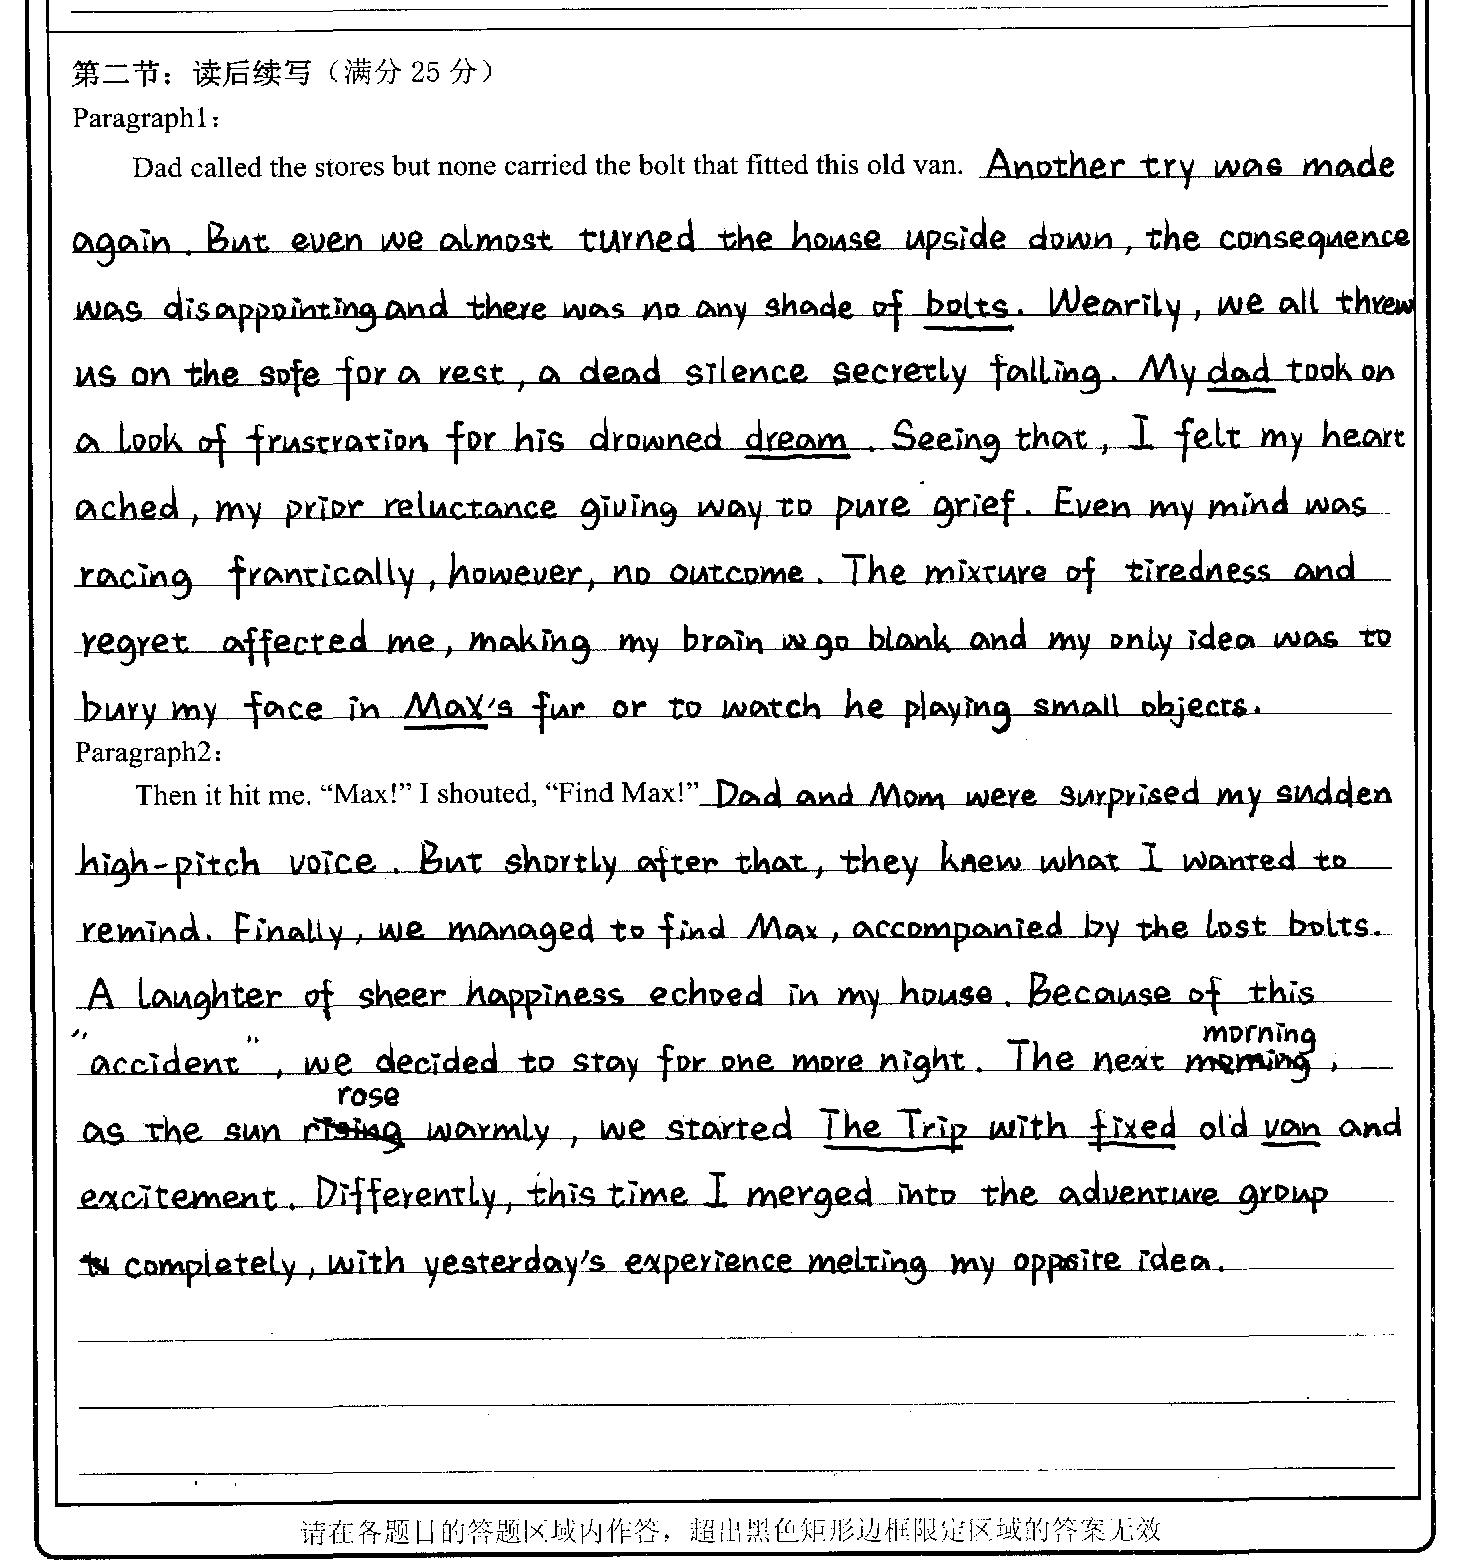 第二节：读后续写（满分 25 分）
Paragraph1：
Dad called the stores but none carried the bolt that fitted this old van. Another try was made
again. But even we almost turned the house upside down, the consequence
was disappointing and there was no any shade of bolts. Wearily, we all threw
us on the sofe for a rest, a dead silence secretly falling. My dad took on
a look of frustration for his drowned dream. Seeing that, I felt my heart
ached, my prior reluctance giving way to pure grief. Even my mind was
racing frantically, however, no outcome. The mixture of tiredness and
regret affected me, making my brain go blank and my only idea was to
bury my face in Max's fur or to watch he playing small objects.
Paragraph2：
Then it hit me. “Max!” I shouted, “Find Max!” Dad and Mom were surprised my sudden
high-pitch voice. But shortly after that, they knew what I wanted to
remind. Finally, we managed to find Max, accompanied by the lost bolts.
A laughter of sheer happiness echoed in my house. Because of this
"accident", we decided to stay for one more night. The next morning,
as the sun rose warmly, we started The Trip with fixed old van and
excitement. Differently, this time I merged into the adventure group
completely, with yesterday's experience melting my oppsite idea.
请在各题目的答题区域内作答，超出黑色矩形边框限定区域的答案无效